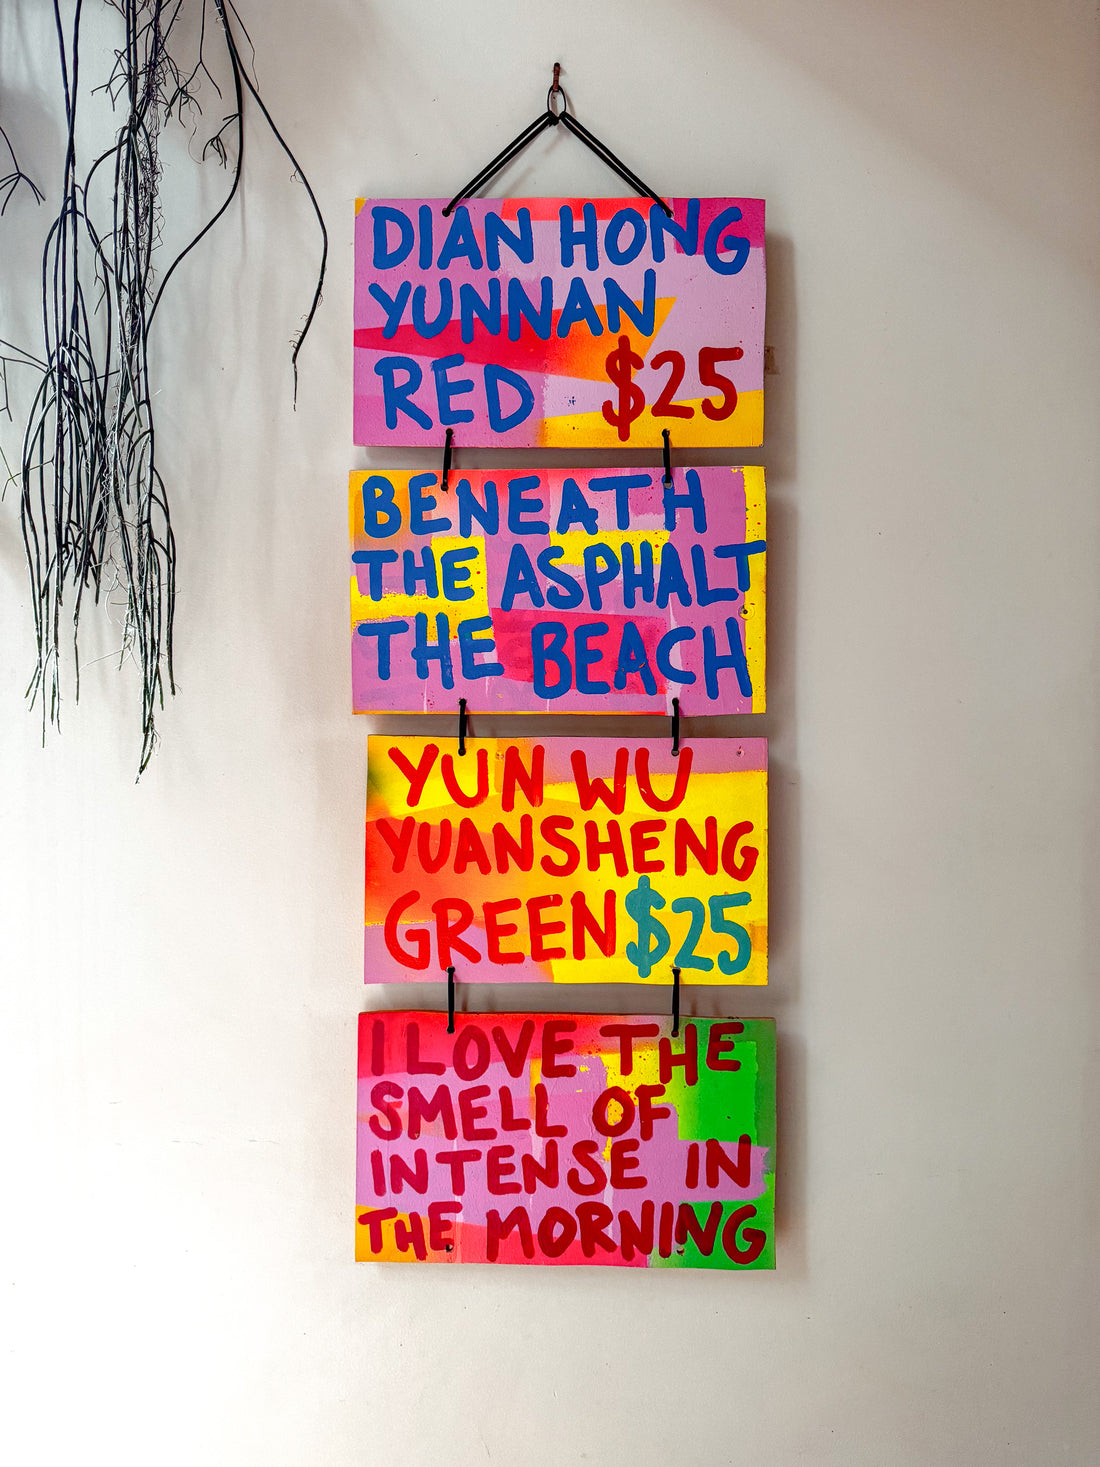 DIAN HONG
YUNNAN
RED $25
BENEATH
THE ASPHALT
THE BEACH
YUN WU
YUANSHENG
GREEN $25
I LOVE THE
SMELL OF
INTENSE IN
THE MORNING